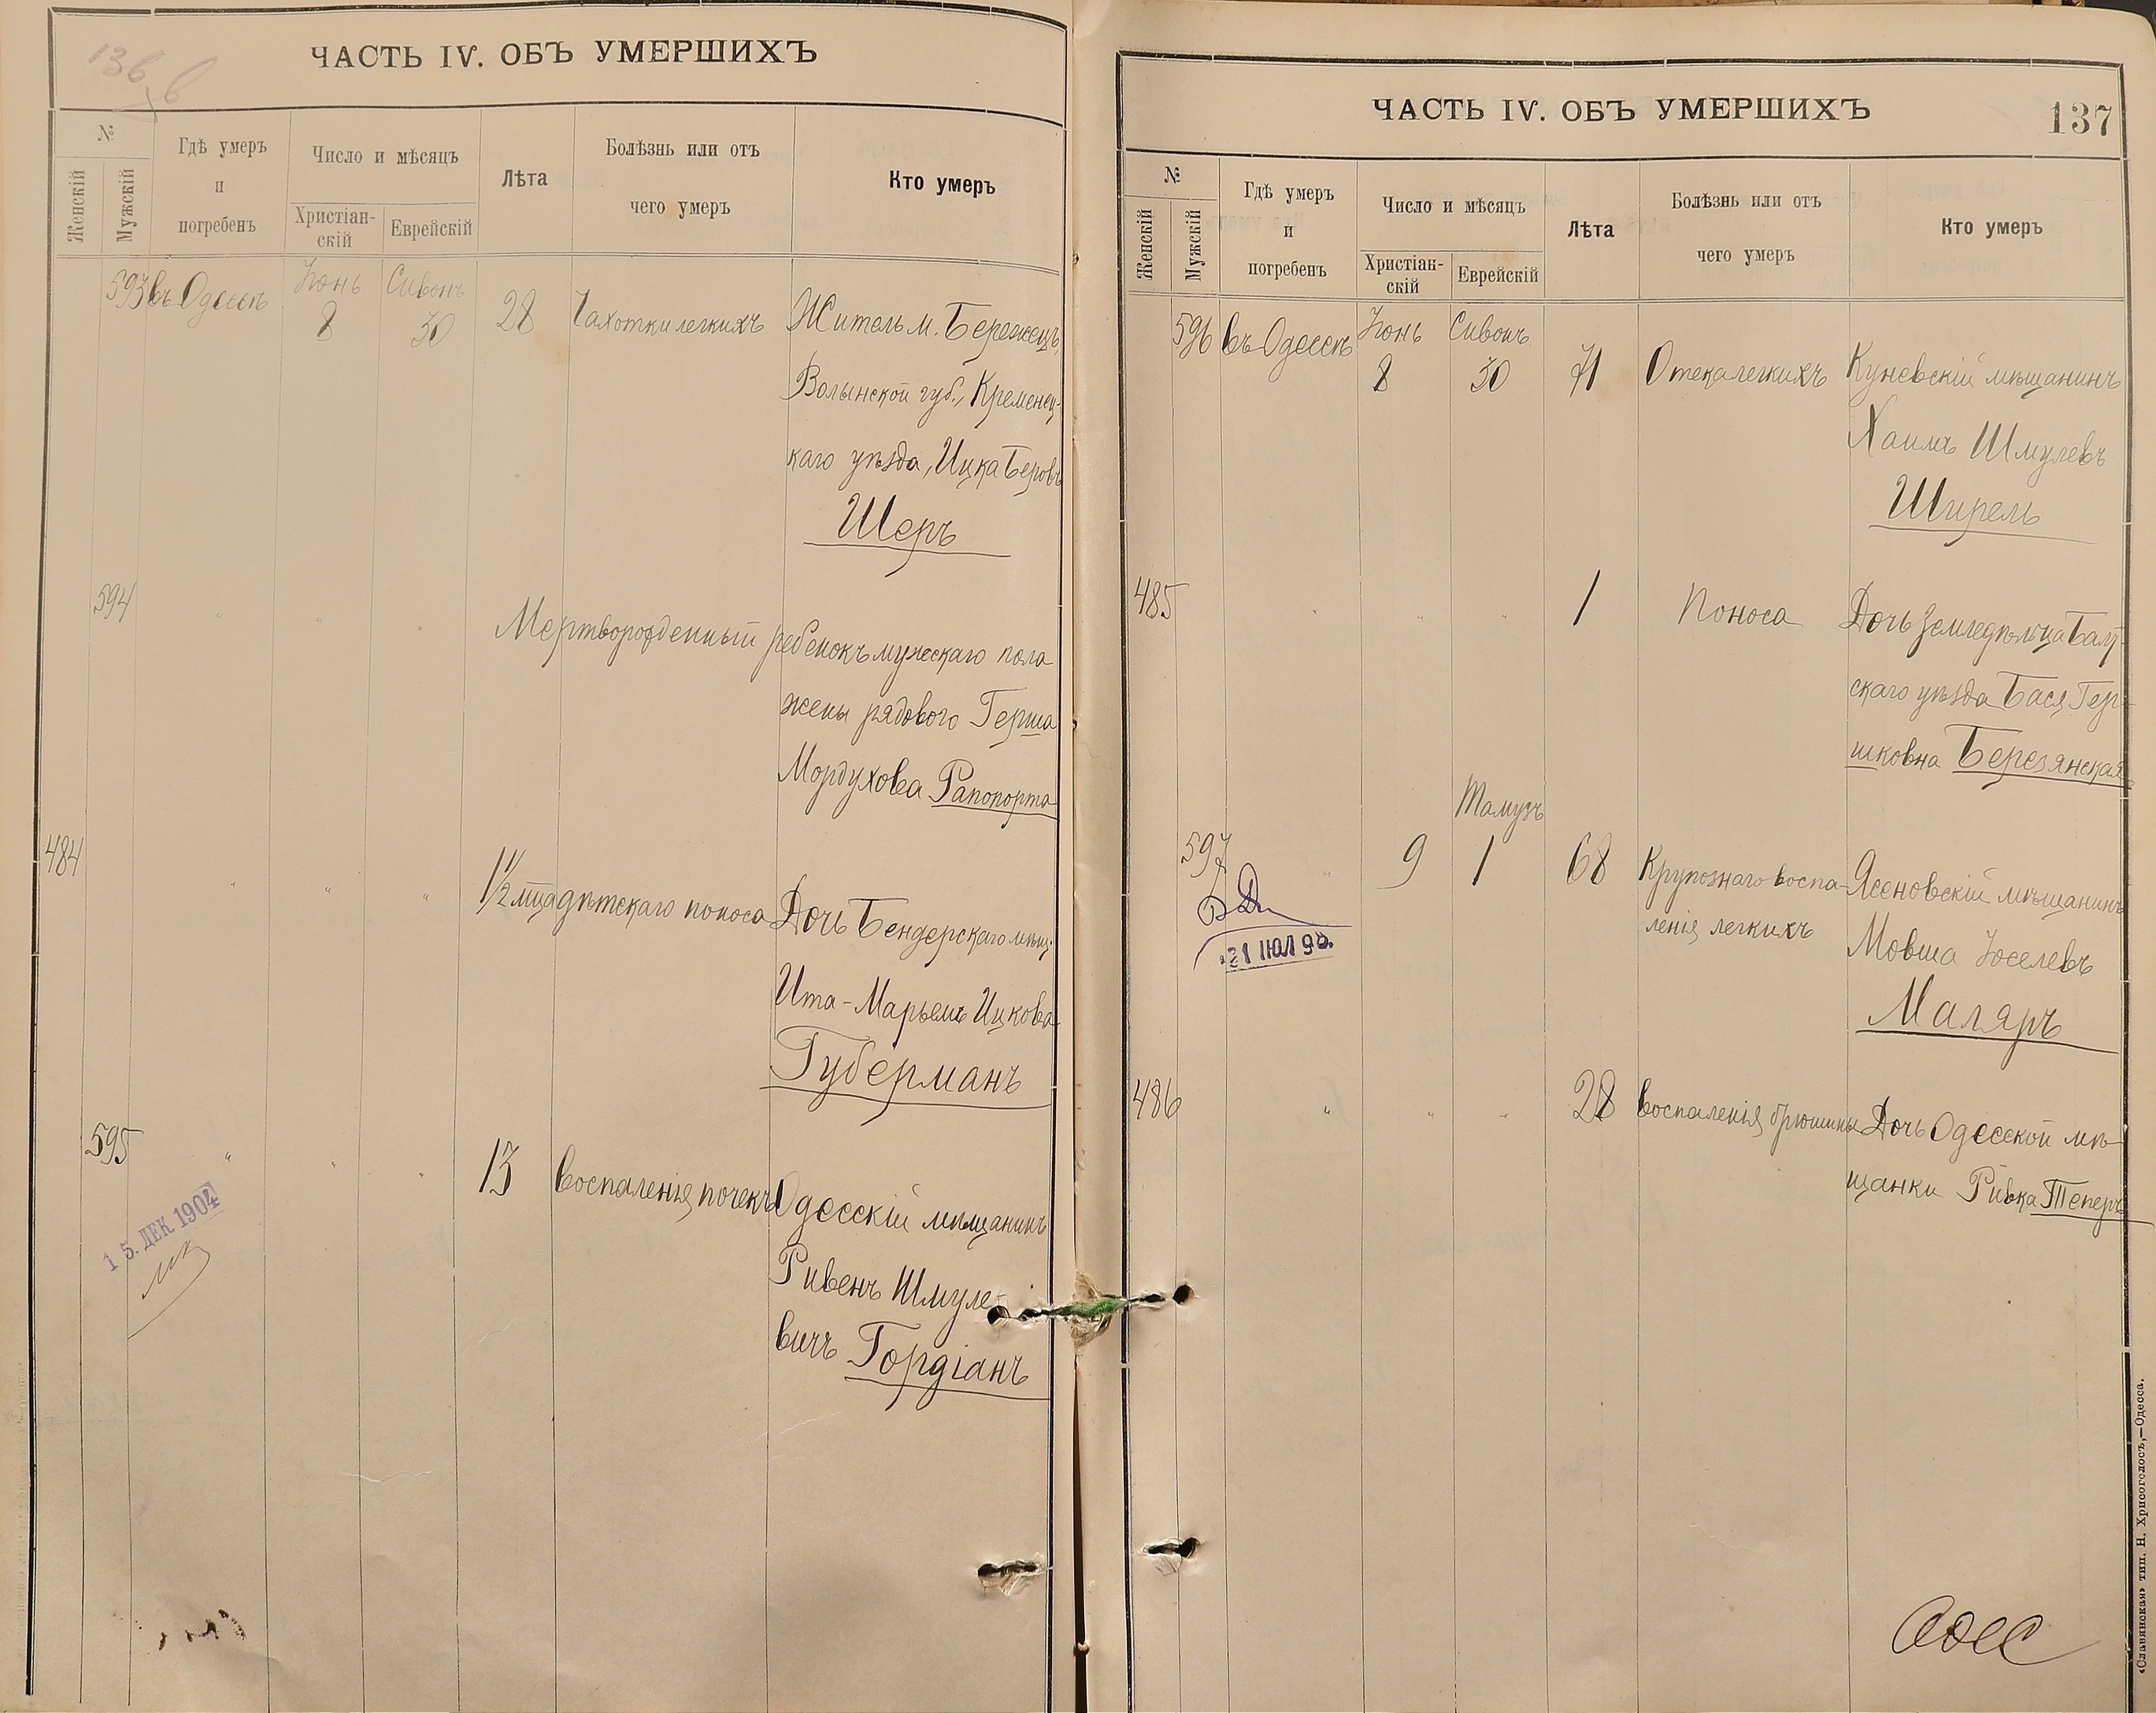 136
ЧАСТЬ IV. ОБЪ УМЕРШИХЪ
№
Женскій
Мужскій
Гдѣ умеръ
и
погребенъ
Число и мѣсяцъ
Христіан-
скій
Еврейскій
Лѣта
Болѣзнь или отъ
чего умеръ
Кто умеръ
593 въ Одессѣ Іюнь Сивонъ
8 30 28 Чахотки легкихъ Житель м. Бережецъ,
Волынской губ., Кременец-
каго уѣзда, Ицка Беровъ
Шеръ
594 " " " Мертворожденный ребенокъ мужескаго пола
жены рядового Герша
Мордухова Рапопорта
484 " " " 1 1/2 мца дѣтскаго поноса Дочь Бендерскаго мѣщ.
Ита-Марьемъ Ицкова
Губерманъ
595 " " " 13 воспаленія почекъ Одесскій мѣщанинъ
Ривенъ Шмуле-
вичъ Гордіанъ
15. ДЕК 1904
ЧАСТЬ IV. ОБЪ УМЕРШИХЪ
137
№
Женскій
Мужскій
Гдѣ умеръ
и
погребенъ
Число и мѣсяцъ
Христіан-
скій
Еврейскій
Лѣта
Болѣзнь или отъ
чего умеръ
Кто умеръ
596 въ Одессѣ Іюнь Сивонъ
8 30 71 Отека легкихъ Куневскій мѣщанинъ
Хаимъ Шмулевъ
Ширель
485 " " " 1 Поноса Дочь земледѣльца Балт-
скаго уѣзда Бася Гер-
шковна Березянская
Тамузъ
597 " 9 1 68 Крупознаго воспа- Ясеновскій мѣщанинъ
ленія легкихъ Мовша Іоселевъ
Маляръ
486 " " " 28 воспаленія брюшины Дочь Одесской мѣ-
щанки Ривка Теперъ
«Славянская» тип. Н. Хрисогелосъ,—Одесса.